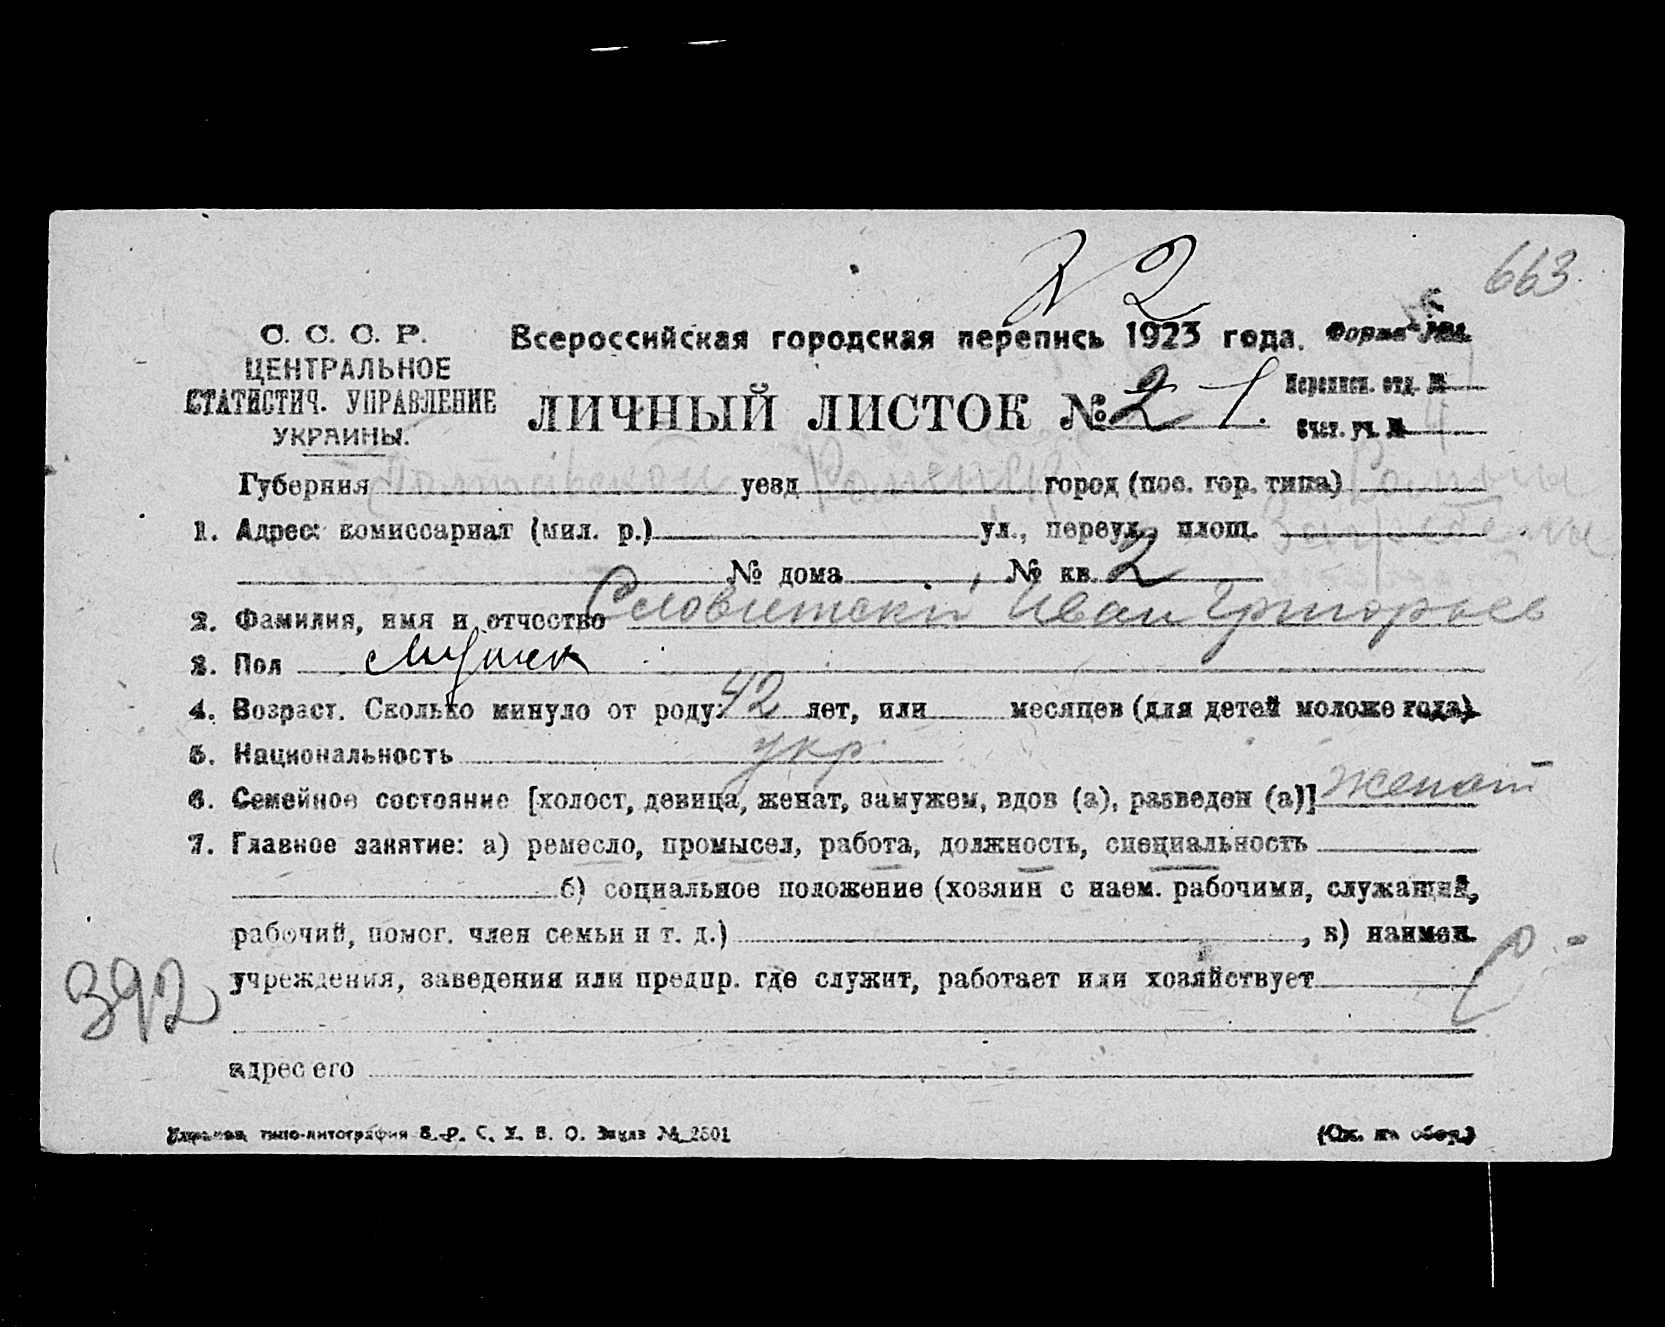 № 2
663
С. С. С. Р.
ЦЕНТРАЛЬНОЕ
СТАТИСТИЧ. УПРАВЛЕНИЕ
УКРАИНЫ.
Всероссийская городская перепись 1923 года. Форма
ЛИЧНЫЙ ЛИСТОК № 2 1.
Переписн. отд. №
Счет. уч. № 4
Губерния Полтавской уезд Роменск город (пос. гор. типа) Ромны
1. Адрес: комиссариат (мил. р.) ул., переул., площ.
№ дома № кв. 2
2. Фамилия, имя и отчество Иван Григорьев
3. Пол мужск
4. Возраст. Сколько минуло от роду: 42 лет, или месяцев (для детей моложе года).
5. Национальность укр.
6. Семейное состояние [холост, девица, женат, замужем, вдов (а), разведен (а)] женат
7. Главное занятие: а) ремесло, промысел, работа, должность, специальность
б) социальное положение (хозяин с наем. рабочими, служащий,
рабочий, помог. член семьи и т. д.) , в) наимен.
учреждения, заведения или предпр. где служит, работает или хозяйствует
392
адрес его
типо-литография В.-Р. С. У. В. О. Заказ № 2501
(См. на обор.)